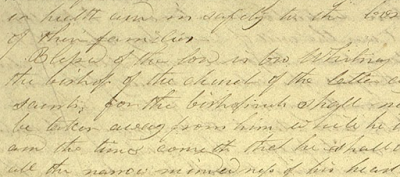 in helth and in safety to the
of their families
Blessed of the Lord is bro Whitney
the bishop of the church of the latter
saints, for the bishoprick shall
be taken away from him while he
and the time cometh that he shall
all the narrow mindedness of his heart